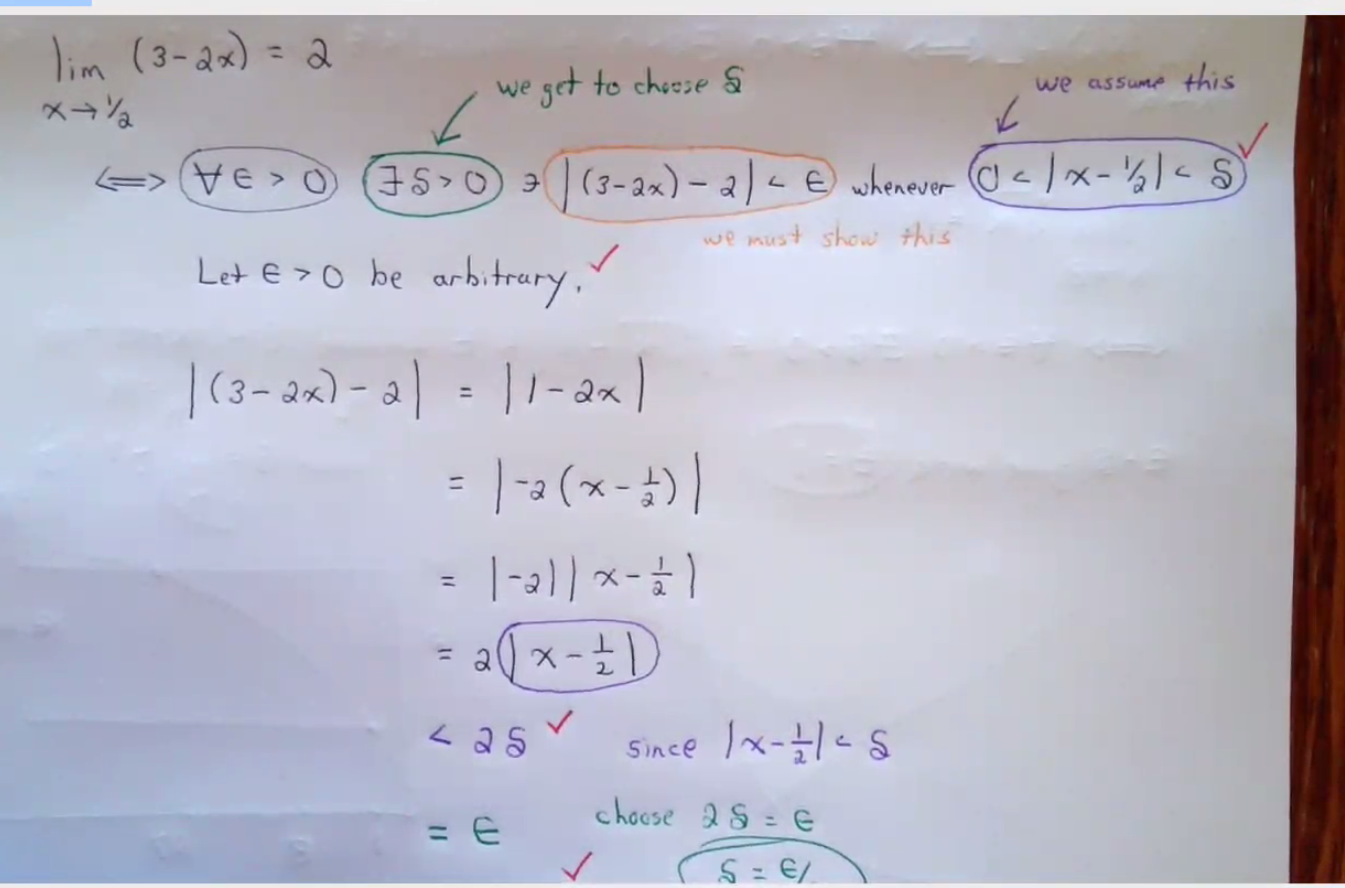 lim (3-2x) = 2
x→1/2
we get to choose δ
we assume this
⟺ ∀ϵ > 0 ∃δ>0 ∋ |(3-2x) - 2| < ϵ whenever 0 < |x-1/2| < δ ✓
we must show this
Let ϵ > 0 be arbitrary. ✓
|(3-2x) - 2| = |1-2x|
= |-2(x-1/2)|
= |-2||x-1/2|
= 2|x-1/2|
< 2δ ✓ since |x-1/2| < δ
= ϵ choose 2δ = ϵ
✓ δ = ϵ/